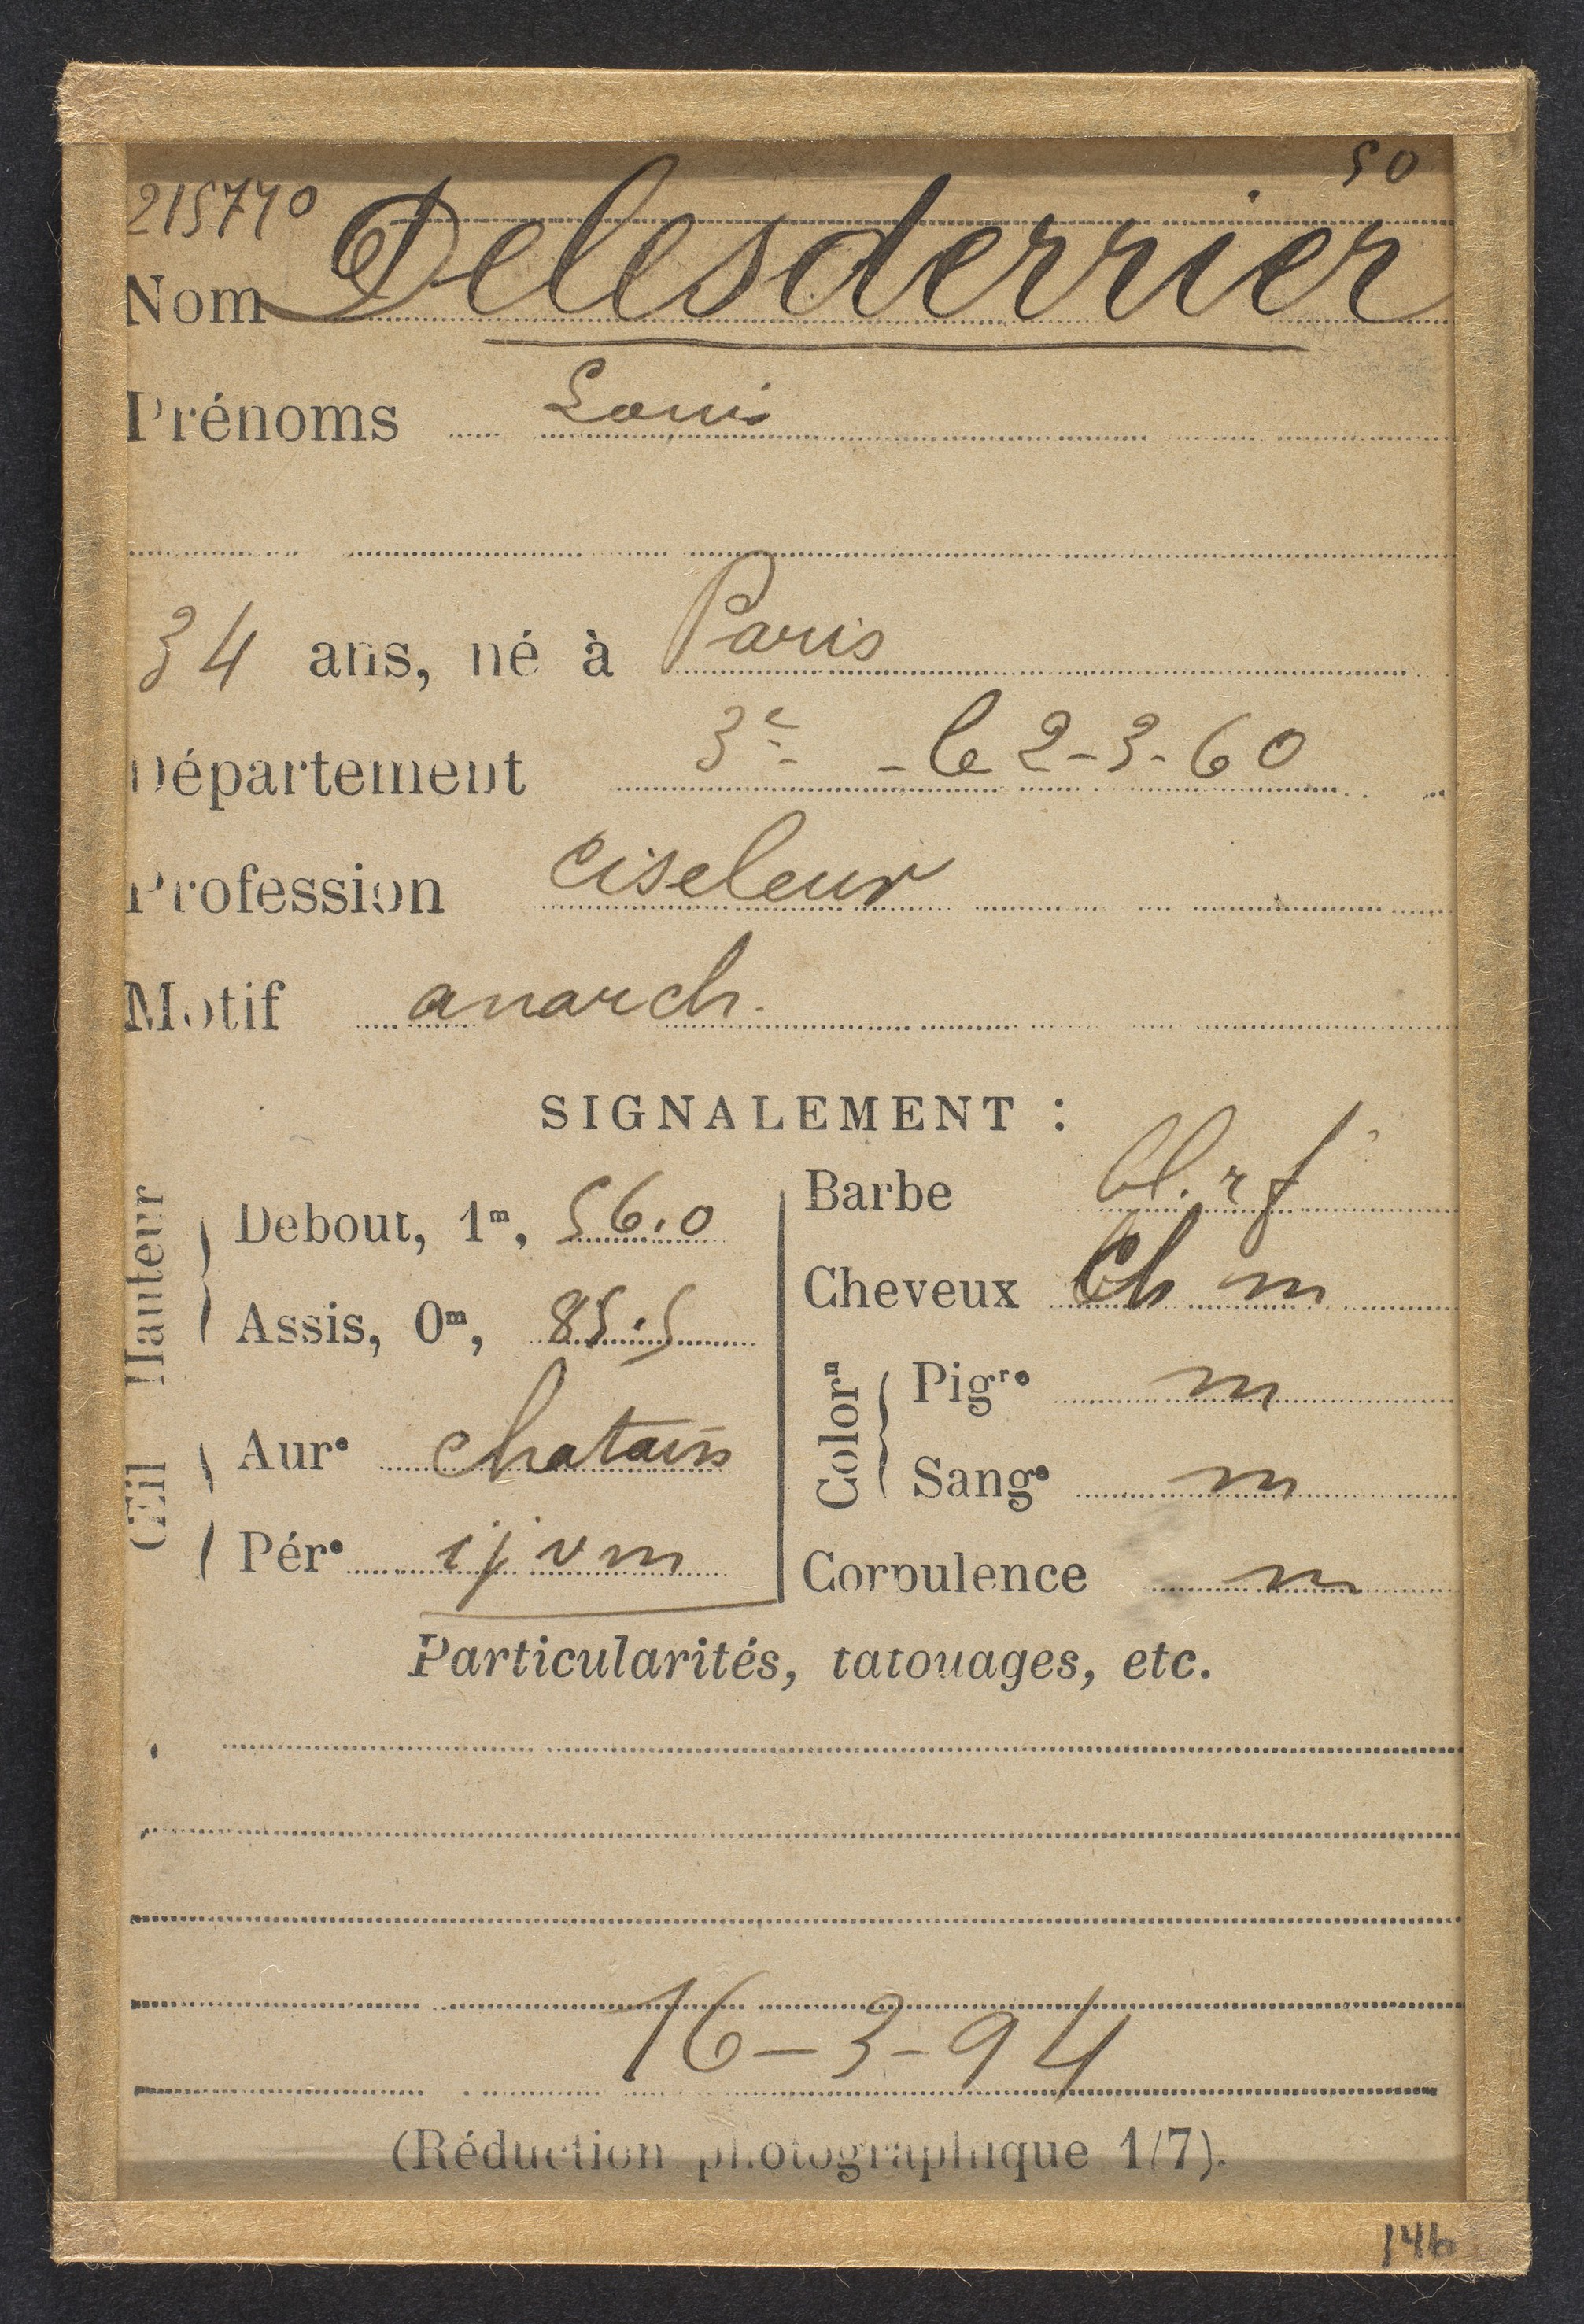 50
215770
Nom Delesderrier
Prénoms Louis
34 ans, né à Paris
Département 3e - le 2-3-60
Profession ciseleur
Motif anarch.
SIGNALEMENT :
Hauteur
Debout, 1m, 56.0
Assis, 0m, 85.5
Œil
Aure chatain
Pére ij v m
Barbe bl. rf
Cheveux Ch m
Colorn
Pigre m
Sange m
Corpulence m
Particularités, tatouages, etc.
16-3-94
(Réduction photographique 1/7).
146